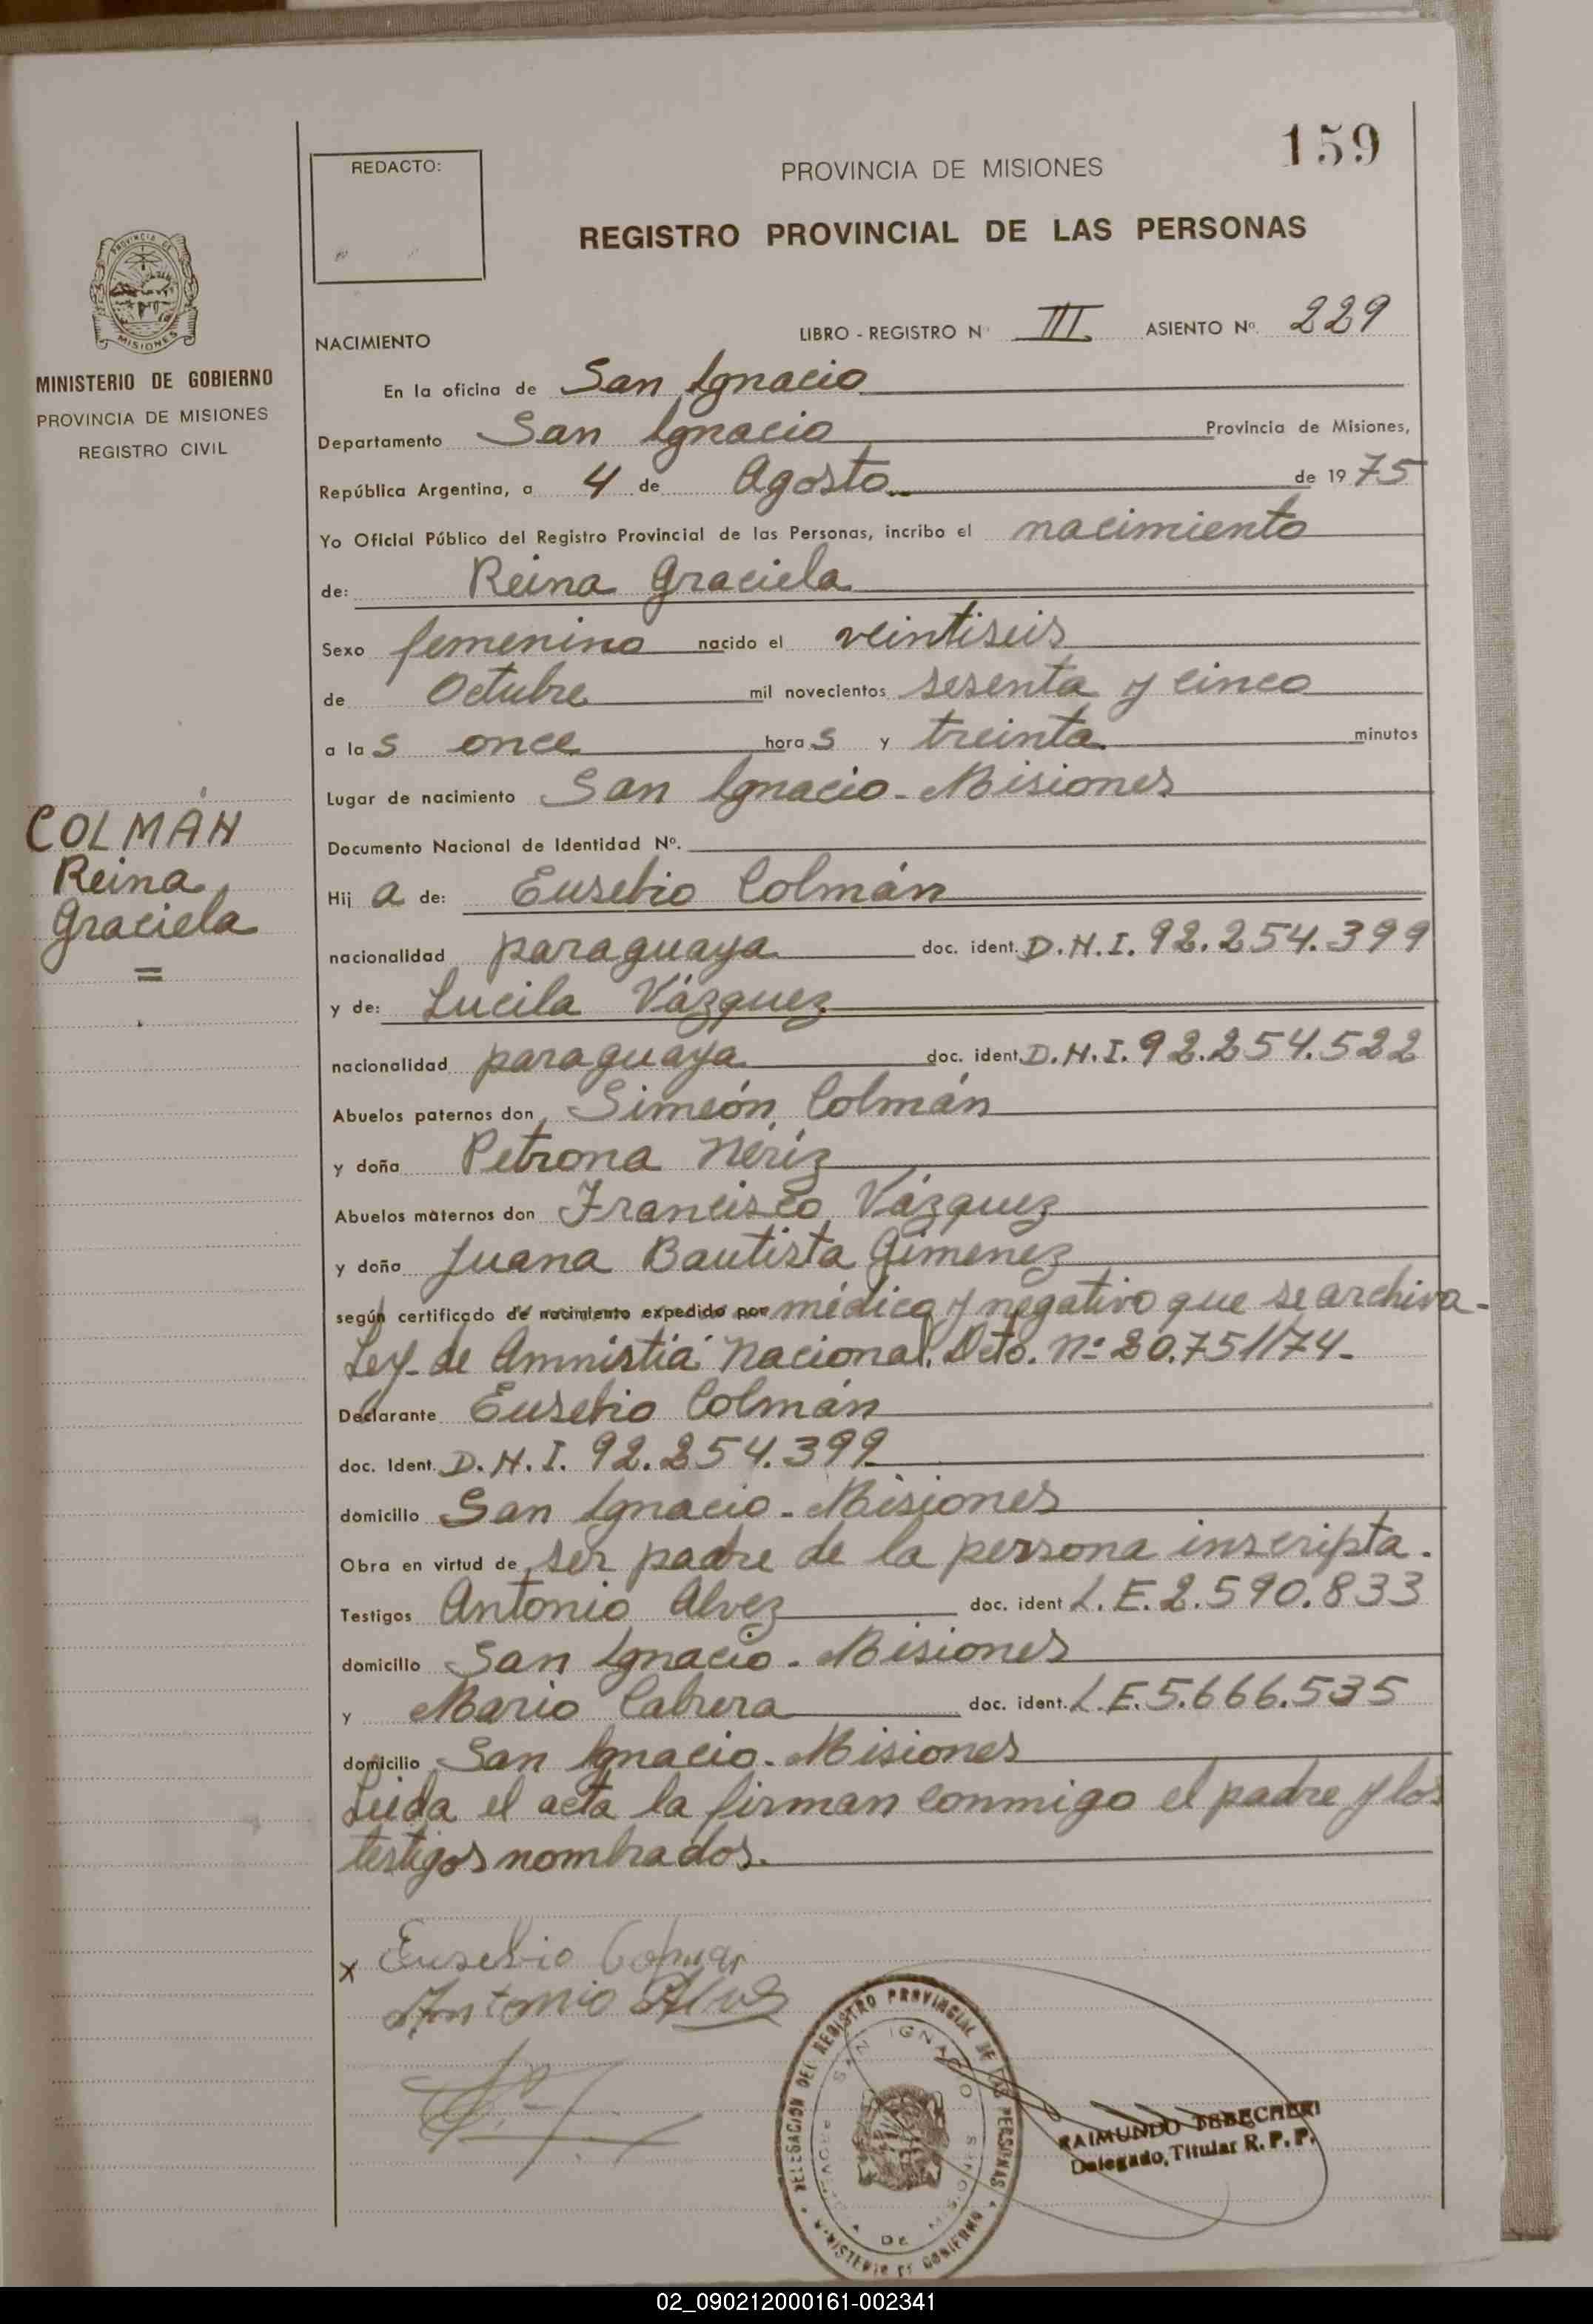 159
REDACTO:
PROVINCIA DE MISIONES
REGISTRO PROVINCIAL DE LAS PERSONAS
PROVINCIA DE
MISIONES
MINISTERIO DE GOBIERNO
PROVINCIA DE MISIONES
REGISTRO CIVIL
NACIMIENTO LIBRO - REGISTRO Nº III ASIENTO Nº. 229
En la oficina de San Ignacio
Departamento San Ignacio Provincia de Misiones,
República Argentina, a 4 de Agosto de 1975
Yo Oficial Público del Registro Provincial de las Personas, incribo el nacimiento
de: Reina Graciela
Sexo femenino nacido el veintiseis
de Octubre mil novecientos sesenta y cinco
a las once horas y treinta minutos
Lugar de nacimiento San Ignacio - Misiones
COLMÁN
Reina
Graciela
=
Documento Nacional de Identidad Nº.
Hija de: Eusebio Colmán
nacionalidad paraguaya doc. ident. D.N.I. 92.254.399
y de: Lucila Vázquez
nacionalidad paraguaya doc. ident. D.N.I. 92.254.522
Abuelos paternos don Simeón Colmán
y doña Petrona Neríz
Abuelos maternos don Francisco Vázquez
y doña Juana Bautista Gimenez
según certificado de nacimiento expedido por médico y negativo que se archiva-
Ley de Amnistia Nacional. Dcto. nº 20.751/74-
Declarante Eusebio Colmán
doc. Ident. D.N.I. 92.254.399
domicilio San Ignacio - Misiones
Obra en virtud de ser padre de la persona inscripta.
Testigos Antonio Alvez doc. ident L.E. 2.590.833
domicilio San Ignacio - Misiones
y Mario Cabrera doc. ident. L.E. 5.666.535
domicilio San Ignacio - Misiones
Leída el acta la firman conmigo el padre y los
testigos nombrados.
x Eusebio Colman
Antonio Alvez
DELEGACION DEL REGISTRO PROVINCIAL DE LAS PERSONAS
SAN IGNACIO
MINISTERIO DE GOBIERNO
RAIMUNDO TEBECHERI
Delegado, Titular R. P. P.
02_090212000161-002341